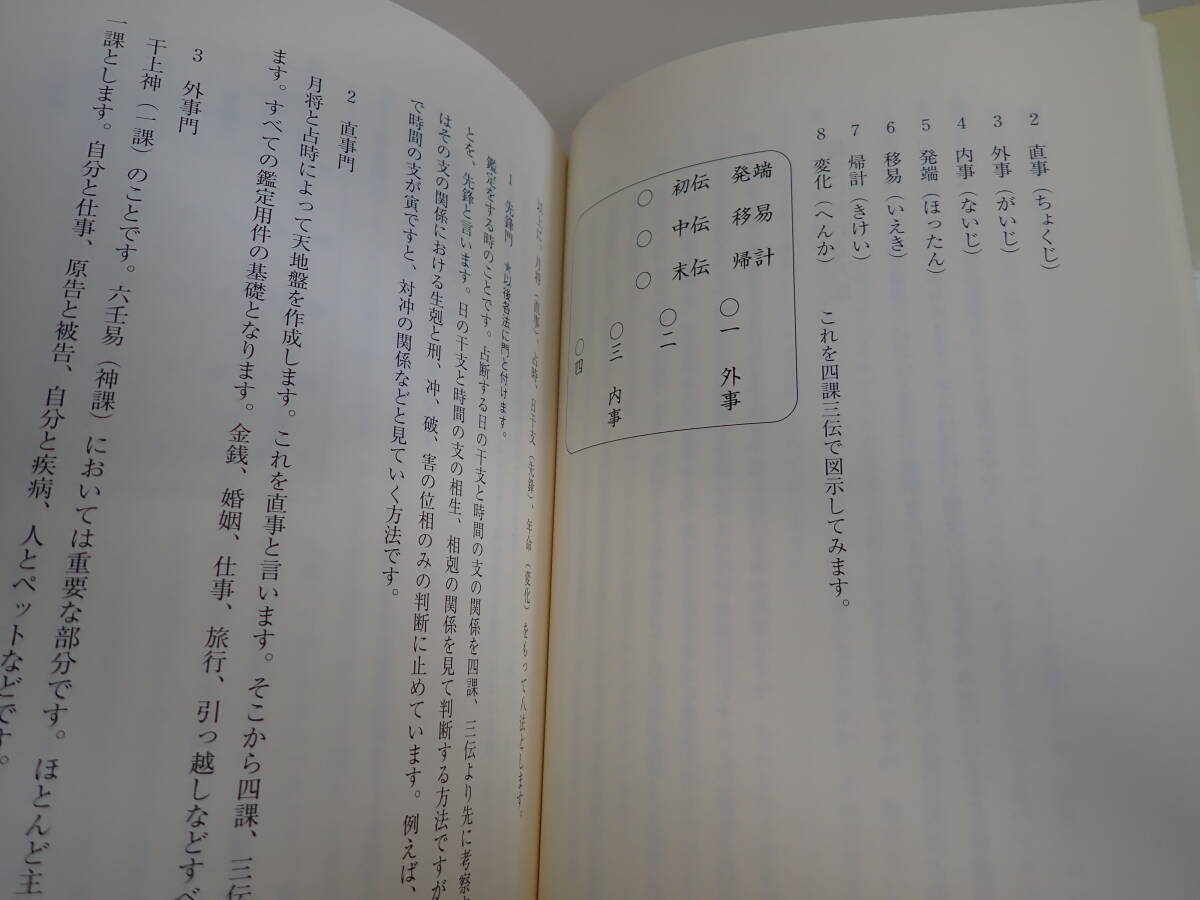 2　直事（ちょくじ）
3　外事（がいじ）
4　内事（ないじ）
5　発端（ほったん）
6　移易（いえき）
7　帰計（きけい）
8　変化（へんか）
これを四課三伝で図示してみます。
発端　初伝　○
移易　中伝　○
帰計　末伝　○
○一　外事
○二
○三　内事
○四
以上に、月将（直事）、占時、日干支（先鋒）、年命（変化）をもって八法とします。
1　先鋒門　★以後各法に門と付けます。
鑑定をする時のことです。占断する日の干支と時間の支の関係を四課、三伝より先に考察
とを、先鋒と言います。日の干支と時間の支の相生、相剋の関係を見て判断する方法ですが
はその支の関係における生剋と刑、冲、破、害の位相のみの判断に止めています。例えば、
で時間の支が寅ですと、対冲の関係などと見ていく方法です。
2　直事門
月将と占時によって天地盤を作成します。これを直事と言います。そこから四課、三伝
ます。すべての鑑定用件の基礎となります。金銭、婚姻、仕事、旅行、引っ越しなどすべ
3　外事門
干上神（一課）のことです。六壬易（神課）においては重要な部分です。ほとんど主
一課とします。自分と仕事、原告と被告、自分と疾病、人とペットなどです。